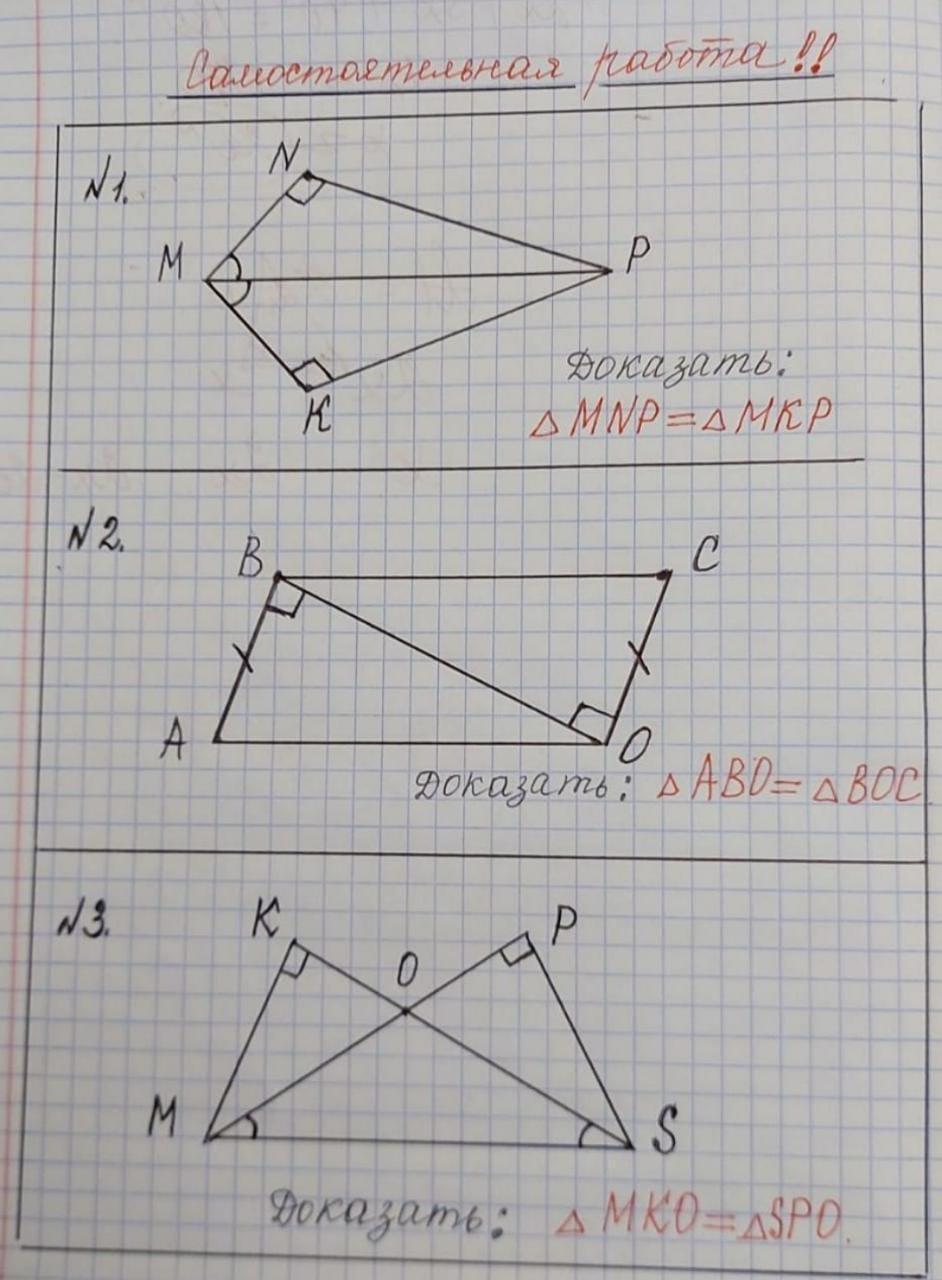 Самостоятельная работа!!
№1.
N
M
P
K
Доказать:
△MNP=△MKP
№2.
B
C
A
O
Доказать: △ABO=△BOC
№3.
K
P
O
M
S
Доказать: △MKO=△SPO.